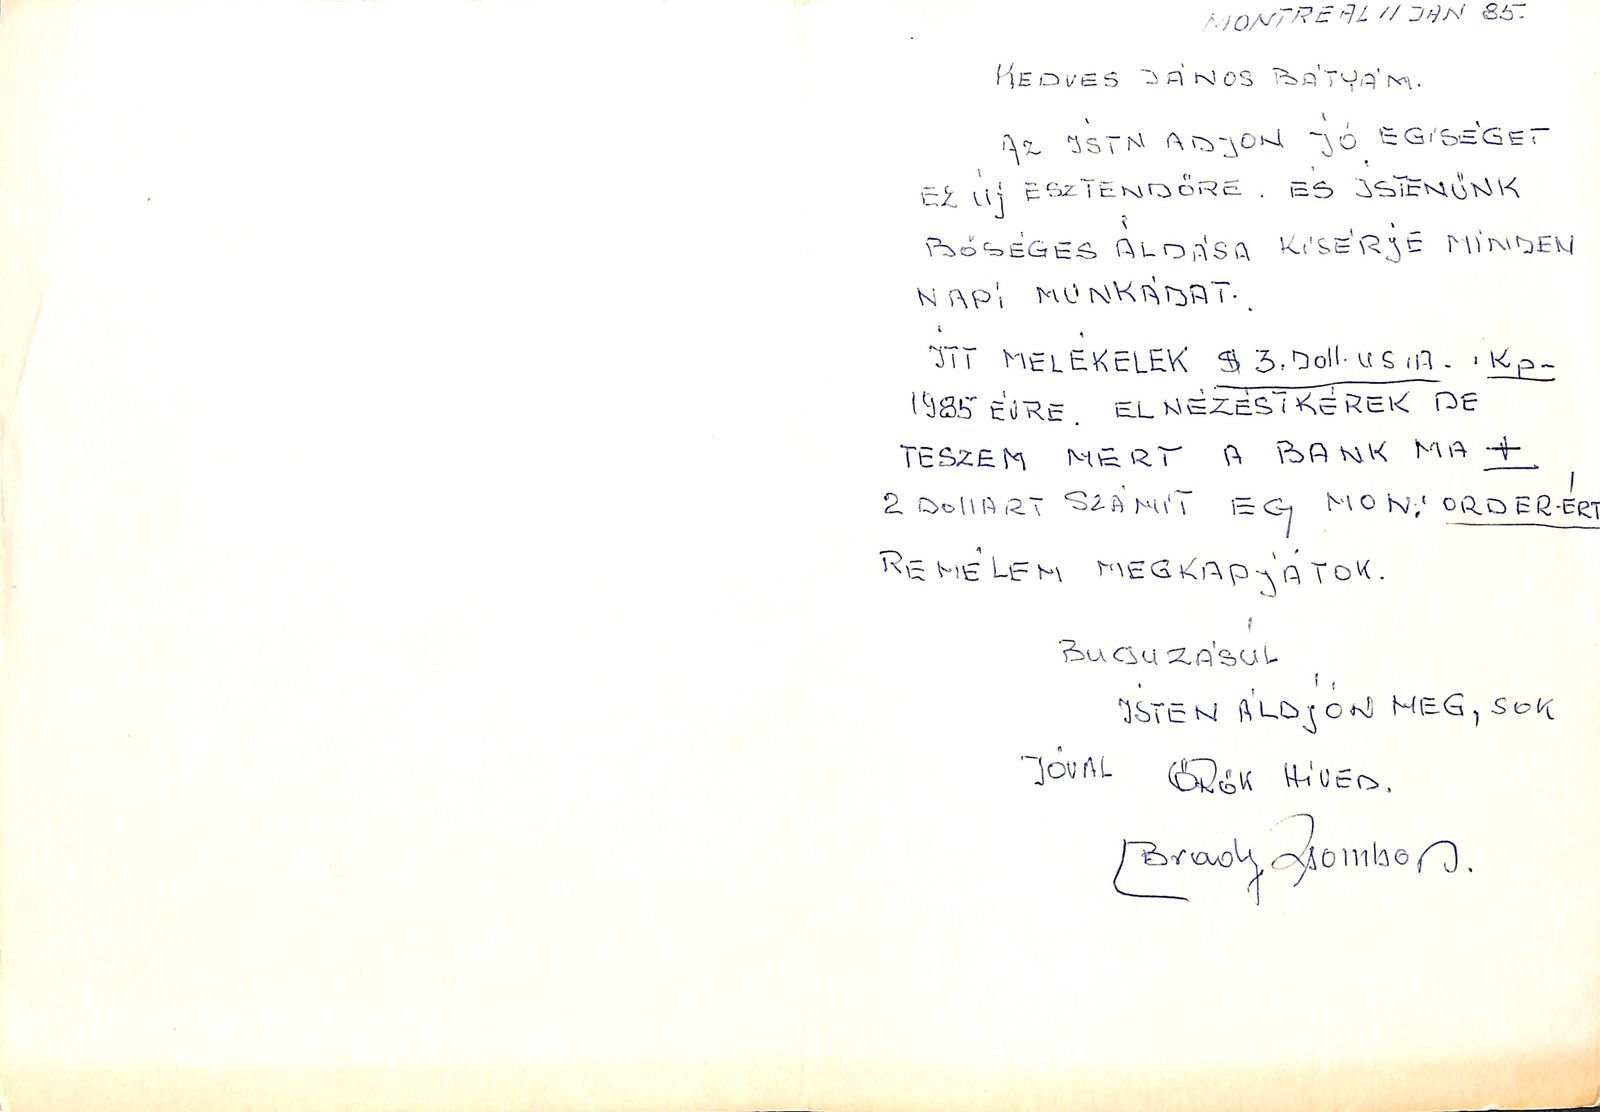 MONTREAL 11 JAN 85.
KEDVES JÁNOS BÁTYÁM.
AZ ISTN ADJON JÓ EGISÉGET
EZ ÚJ ESZTENDŐRE. ÉS ISTENÜNK
BŐSÉGES ÁLDÁSA KISÉRJE MINDEN
NAPI MUNKÁDAT.
ITT MELÉKELEK $ 3. Doll. U S.A. Kp-
1985 ÉVRE. ELNÉZÉSTKÉREK DE
TESZEM MERT A BANK MA +
2 DollART SZÁMIT EGY MON: ORDER-ÉRT
REMÉLEM MEGKAPJÁTOK.
BUCSUZÁSUL
ISTEN ÁLDJON MEG, SOK
JÓVAL ÖRÖK HIVED.
Brady Zsombor.